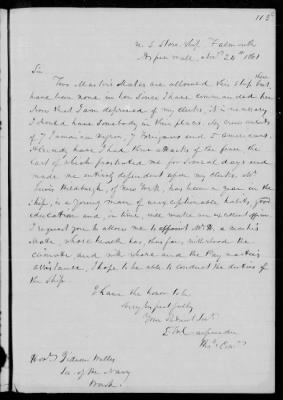 115
U. S. Store Ship Falmouth
Aspinwall, Nov. 24th 1861
Sir
Two Master's Mates are allowed this ship but there
have been none in her since I have commanded her.
Now that I am deprived of my clerk, it is necessary
I should have somebody in their place. My crew consists
of 7 Jamaican Negroes, 7 and 5 Americans.
Already have I had three attacks of the fever the
last of which prostrated me for several days and
made me entirely dependent upon my clerk. Mr
Lewis of New York, has been a year in the
ship, is a young man of unexceptionable habits, good
education and, in time, will make an excellent officer.
I request you to allow me to appoint Mr. H. a master's
mate, whose health has, thus far, withstood the
climate and with whose and the Pay master's
assistance, I hope to be able to conduct the duties of
the ship.
I have the honor to be
Very respectfully
Your Obedient Servt
Hon. Gideon Welles
Sec. of the Navy
Wash.